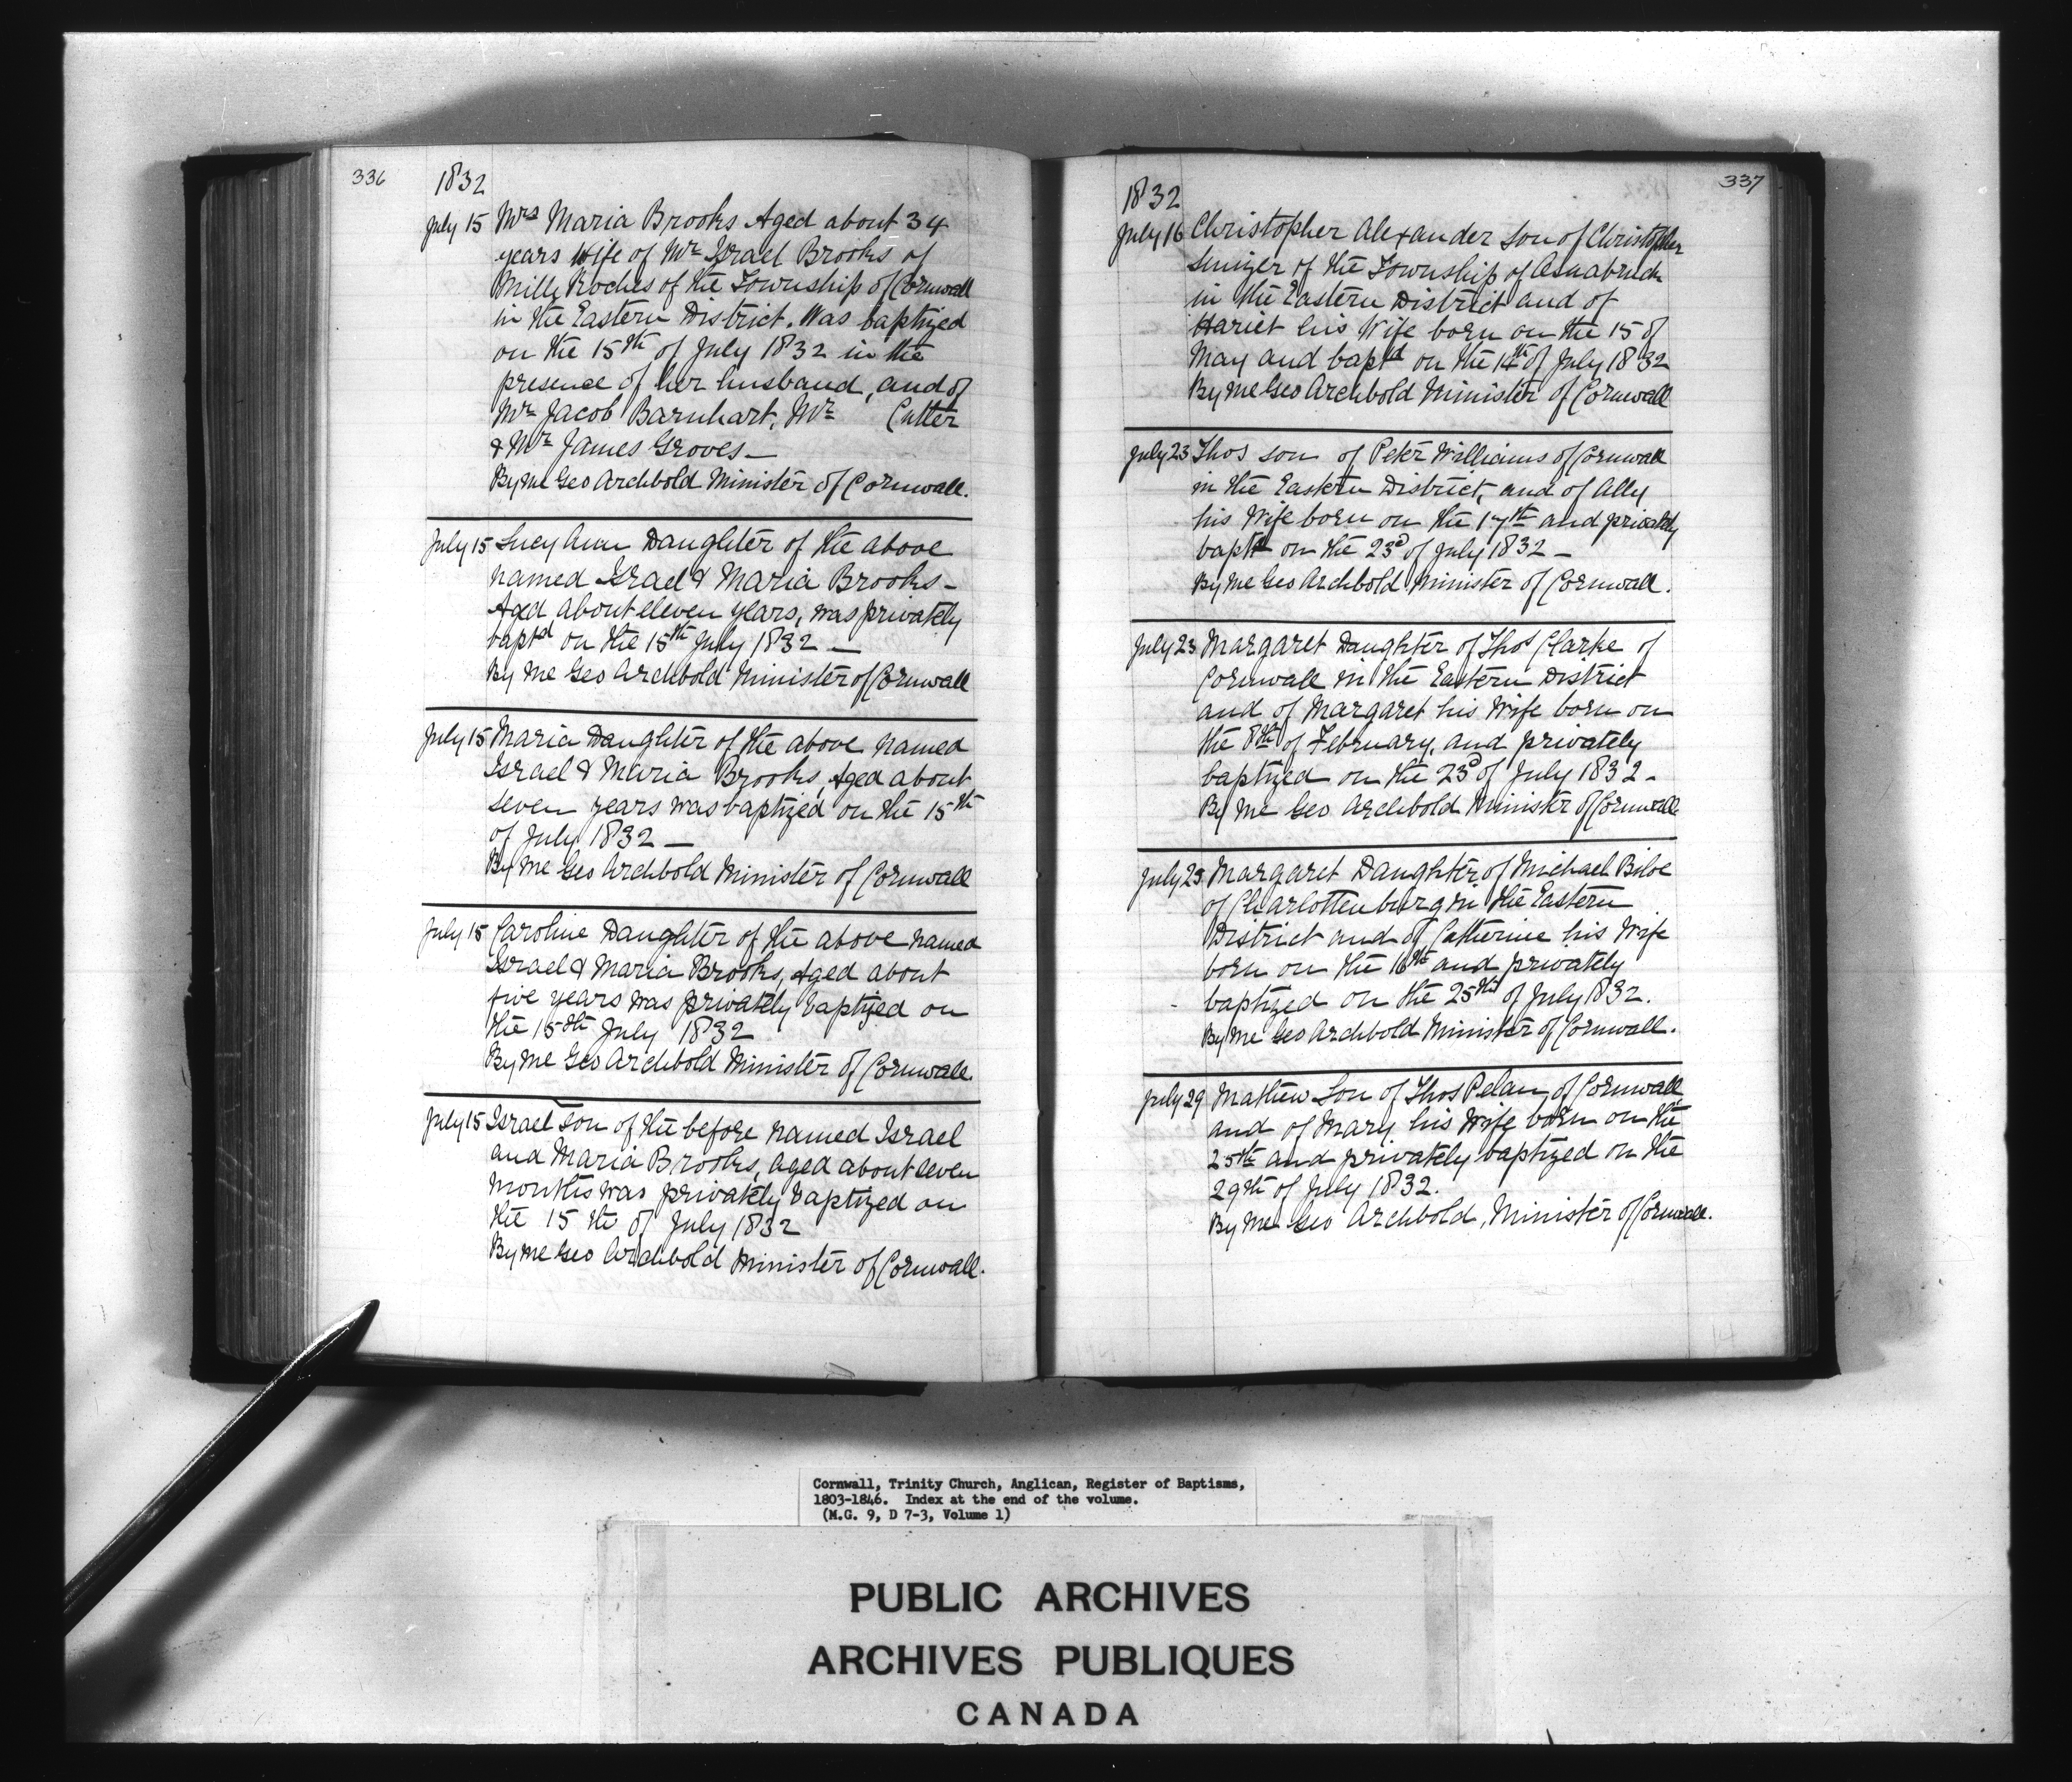 336
1832
July 15 Mrs Maria Brooks Aged about 34
years Wife of Mr Israel Brooks of
Mille Roches of the Township of Cornwall
in the Eastern District. Was baptized
on the 15th of July 1832 in the
presence of her husband, and of
Mr Jacob Barnhart, Mr Cutter
& Mr James Groves —
By me Geo Archbold Minister of Cornwall.
July 15 Lucy Ann Daughter of the above
named Israel & Maria Brooks –
Aged about eleven years, was privately
baptd on the 15th July 1832 —
By me Geo Archbold Minister of Cornwall
July 15 Maria Daughter of the above named
Israel & Maria Brooks, Aged about
seven years was baptized on the 15th
of July 1832 —
By me Geo Archbold Minister of Cornwall
July 15 Caroline Daughter of the above named
Israel & Maria Brooks, Aged about
five years was privately baptized on
the 15th July 1832
By me Geo Archbold Minister of Cornwall.
July 15 Israel son of the before named Israel
and Maria Brooks, aged about seven
months was privately baptized on
the 15 th of July 1832
By me Geo Archbold Minister of Cornwall.
337
1832
July 16 Christopher Alexander son of Christopher
of the Township of Osnabruck
in the Eastern District and of
Hariet his Wife born on the 15 of
May and baptd on the of July 1832
By me Geo Archbold Minister of Cornwall
July 23 Thos son of Peter Williams of Cornwall
in the Eastern District, and of Ally
his Wife born on the 17th and privately
baptd on the 23d of July 1832 –
By me Geo Archbold Minister of Cornwall.
July 23 Margaret Daughter of Thos Clarke of
Cornwall in the Eastern District
and of Margaret his Wife born on
the 8th of February, and privately
baptized on the 23d of July 1832 –
By me Geo Archbold Minister of Cornwall
July 25 Margaret Daughter of Michael
of Charlottenburg in the Eastern
District and of Catherine his Wife
born on the 16th and privately
baptized on the 25th of July 1832.
By me Geo Archbold Minister of Cornwall.
July 29 Mathew Son of Thos Pelan of Cornwall
and of Mary his Wife born on the
25th and privately baptized on the
29th of July 1832.
By me Geo Archbold, Minister of Cornwall.
Cornwall, Trinity Church, Anglican, Register of Baptisms,
1803-1846. Index at the end of the volume.
(M.G. 9, D 7-3, Volume 1)
PUBLIC ARCHIVES
ARCHIVES PUBLIQUES
CANADA